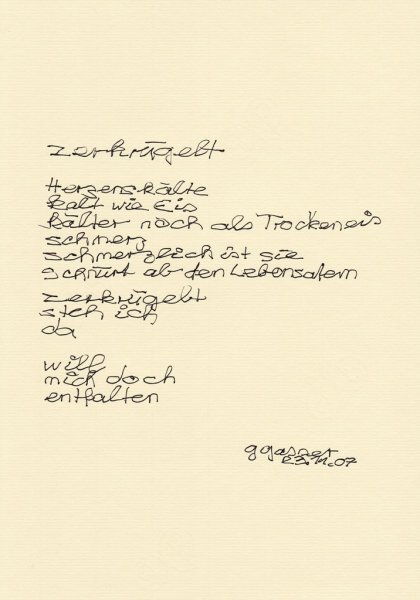 zerkrügelt
Herzenskälte
kalt wie Eis
kälter noch als Trockeneis
schmerz
schmerzlich ist sie
schnürt ab den Lebensatem
zerkrügelt
steh ich
da
will
mich doch
entfalten
ggasner
23.11.07